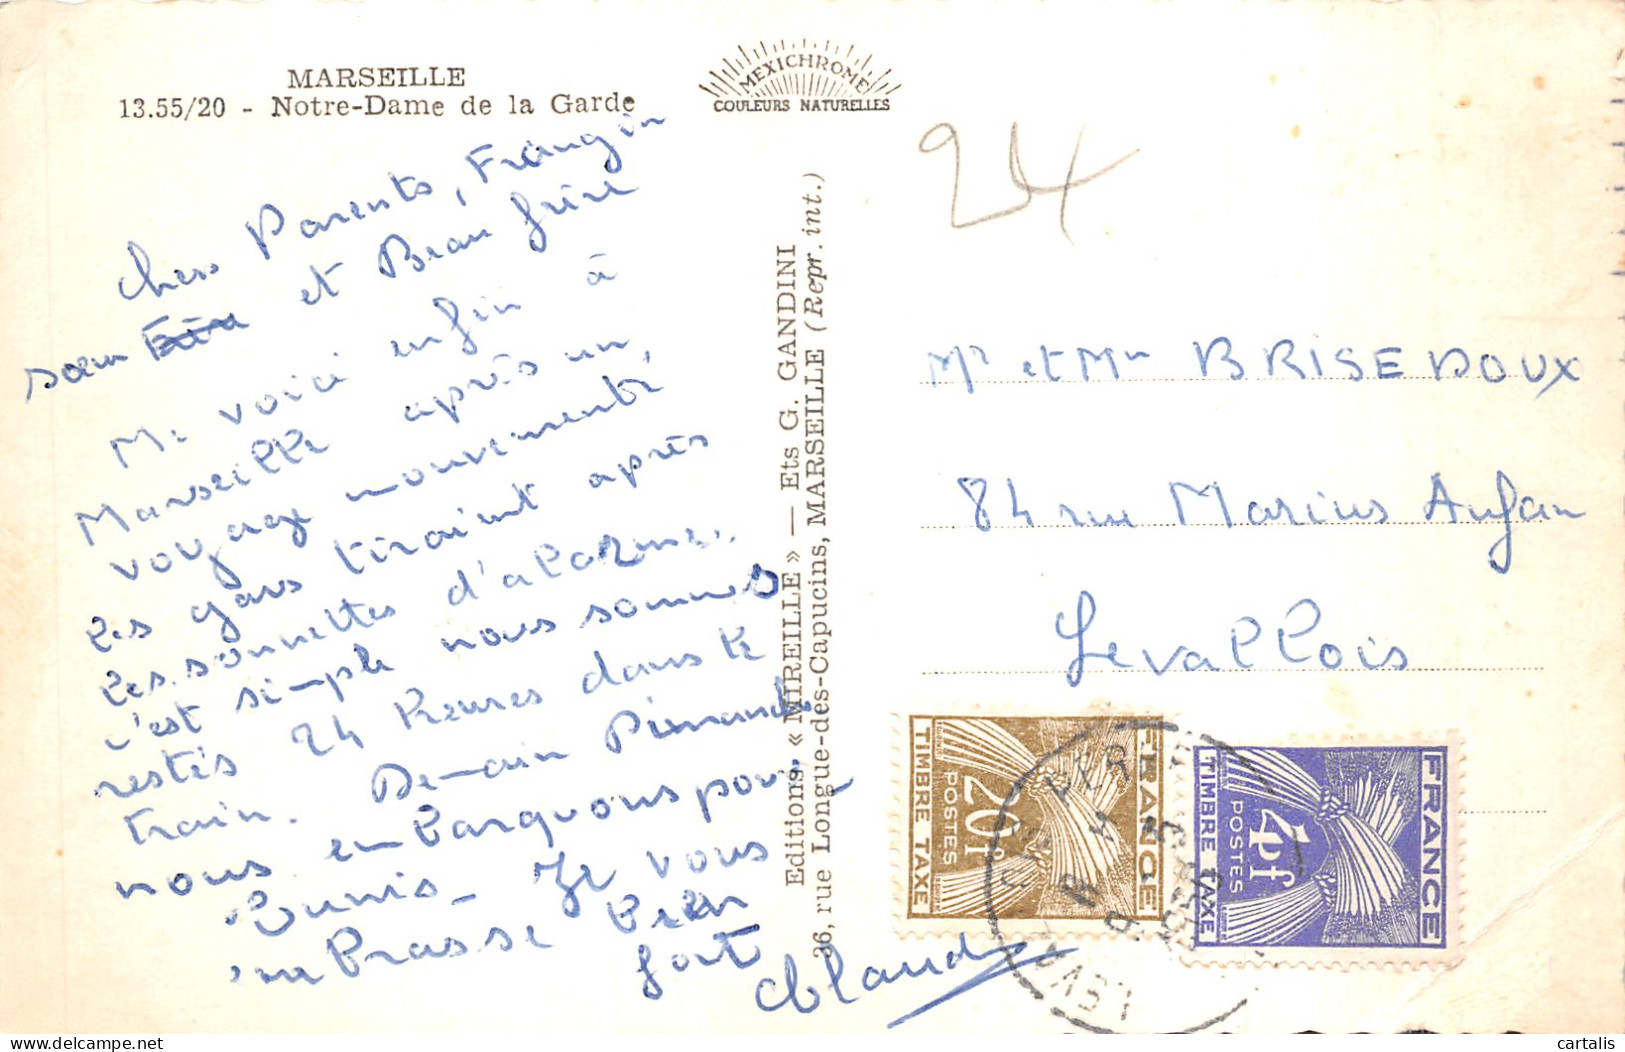 MARSEILLE
13.55/20 - Notre-Dame de la Garde
MEXICHROME
COULEURS NATURELLES
24
Chers Parents, Frangin
sœur et Beau frère
Me voici enfin à
Marseille après un
voyage mouvementé,
les gars tiraient après
les sonnettes d'alarme.
c'est simple nous sommes
restés 24 heures dans le
train. Demain Dimanche
nous embarquons pour
Tunis. Je vous
embrasse bien
fort
Claude
Editions « MIREILLE » — Ets G. GANDINI
36, rue Longue-des-Capucins, MARSEILLE (Repr. int.)
Mr et Mme BRISEDOUX
84 rue Marius Aufan
Levallois
FRANCE
20F
POSTES
TIMBRE TAXE
FRANCE
4F
POSTES
TIMBRE TAXE
LEVALLOIS PERRET
cartalis